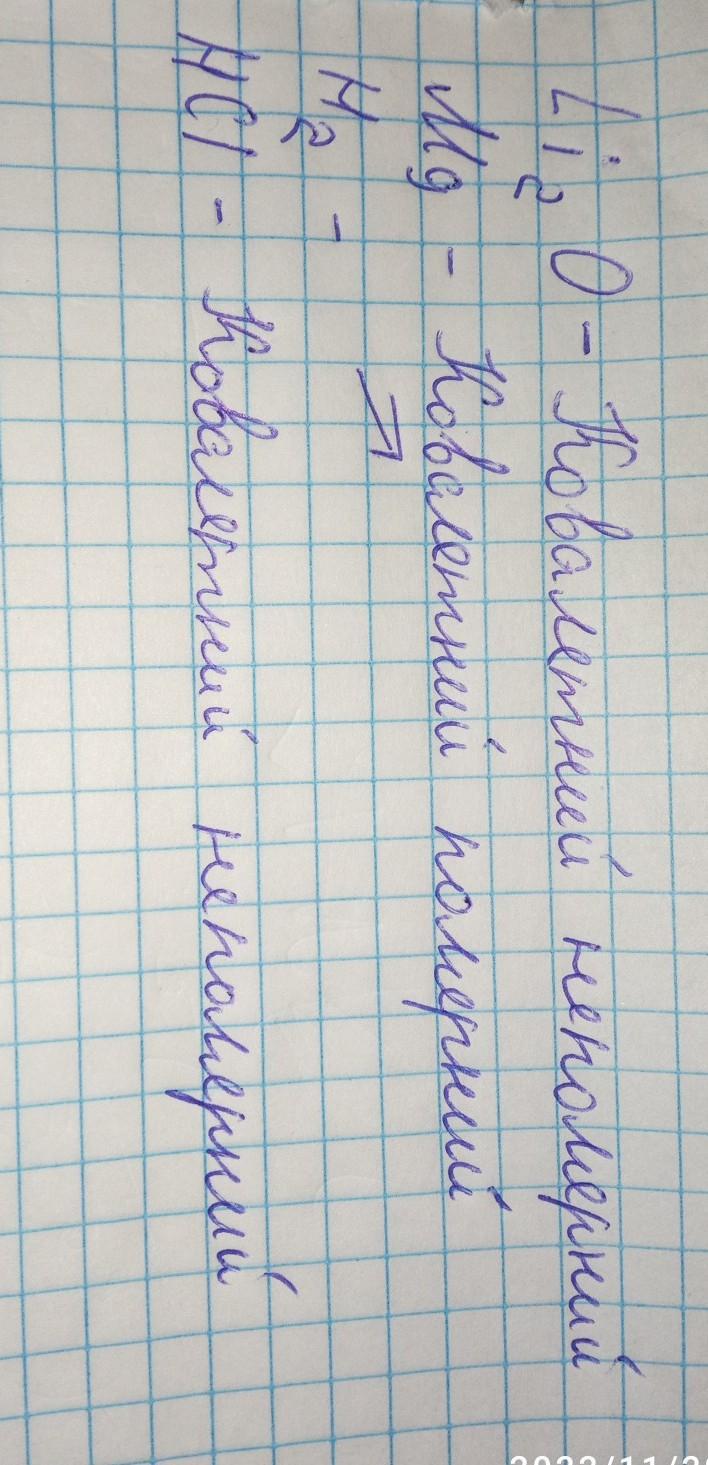 Li₂O - Ковалетний неполерний
Mg - Ковалетний полерний
H₂ -
HCl - Ковалетний неполерний